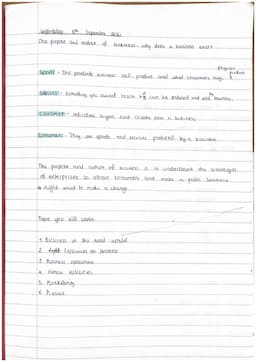 Wednesday 8th September 2021
The purpose and nature of business - why does a business exist?
physical product
Goods - The products business sell, produce and what consumers buy.
Services - Something you cannot touch
Customer - individual buyers and clients from a business
Consumer - They use goods and services produced by a business
The purpose and nature of business is to understand the strategies
of enterprises to attract consumers and make a profit. Someone
might want to make a change.
Topic you will learn
1. Business in the real world
2. Influences on business
3. Business operations
4. Human resources
5. Marketing
6. Finance